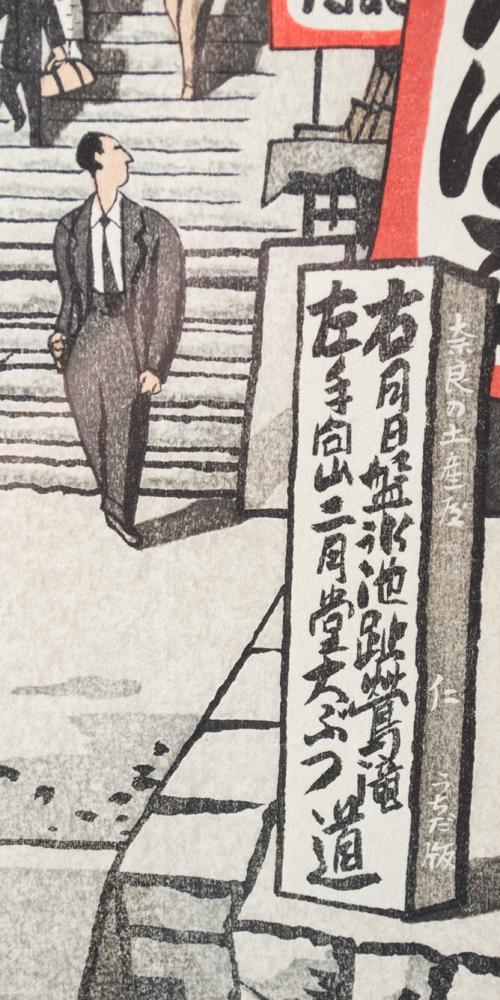 右月日盤氷池趾鶯滝
左手向山二月堂大ぶつ道
奈良の土産店
仁
うちだ版